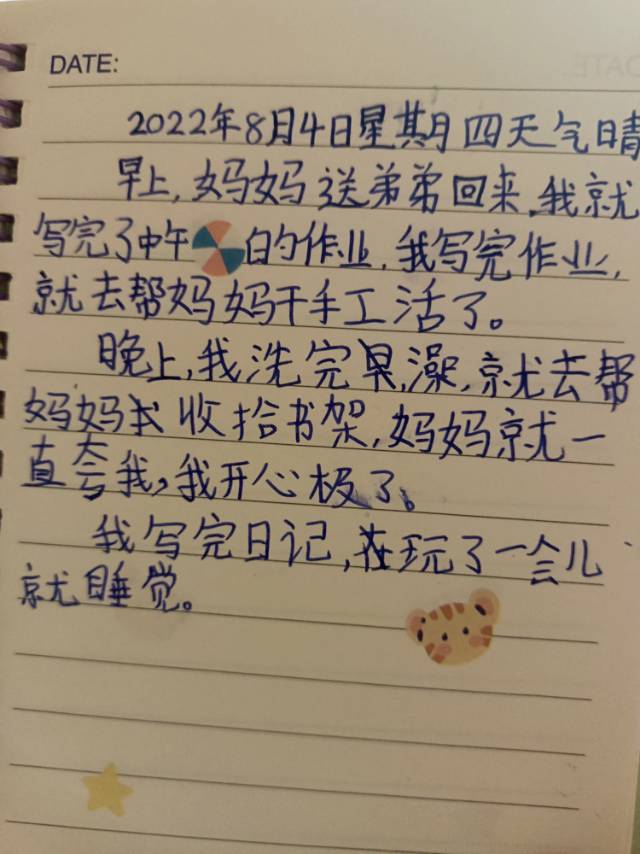 DATE:
2022年8月4日星期四天气晴
早上,妈妈送弟弟回来,我就
写完了中午的作业,我写完作业,
就去帮妈妈干手工活了。
晚上,我洗完澡,就去帮
妈妈收拾书架,妈妈就一
直夸我,我开心极了。
我写完日记,在玩了一会儿
就睡觉。